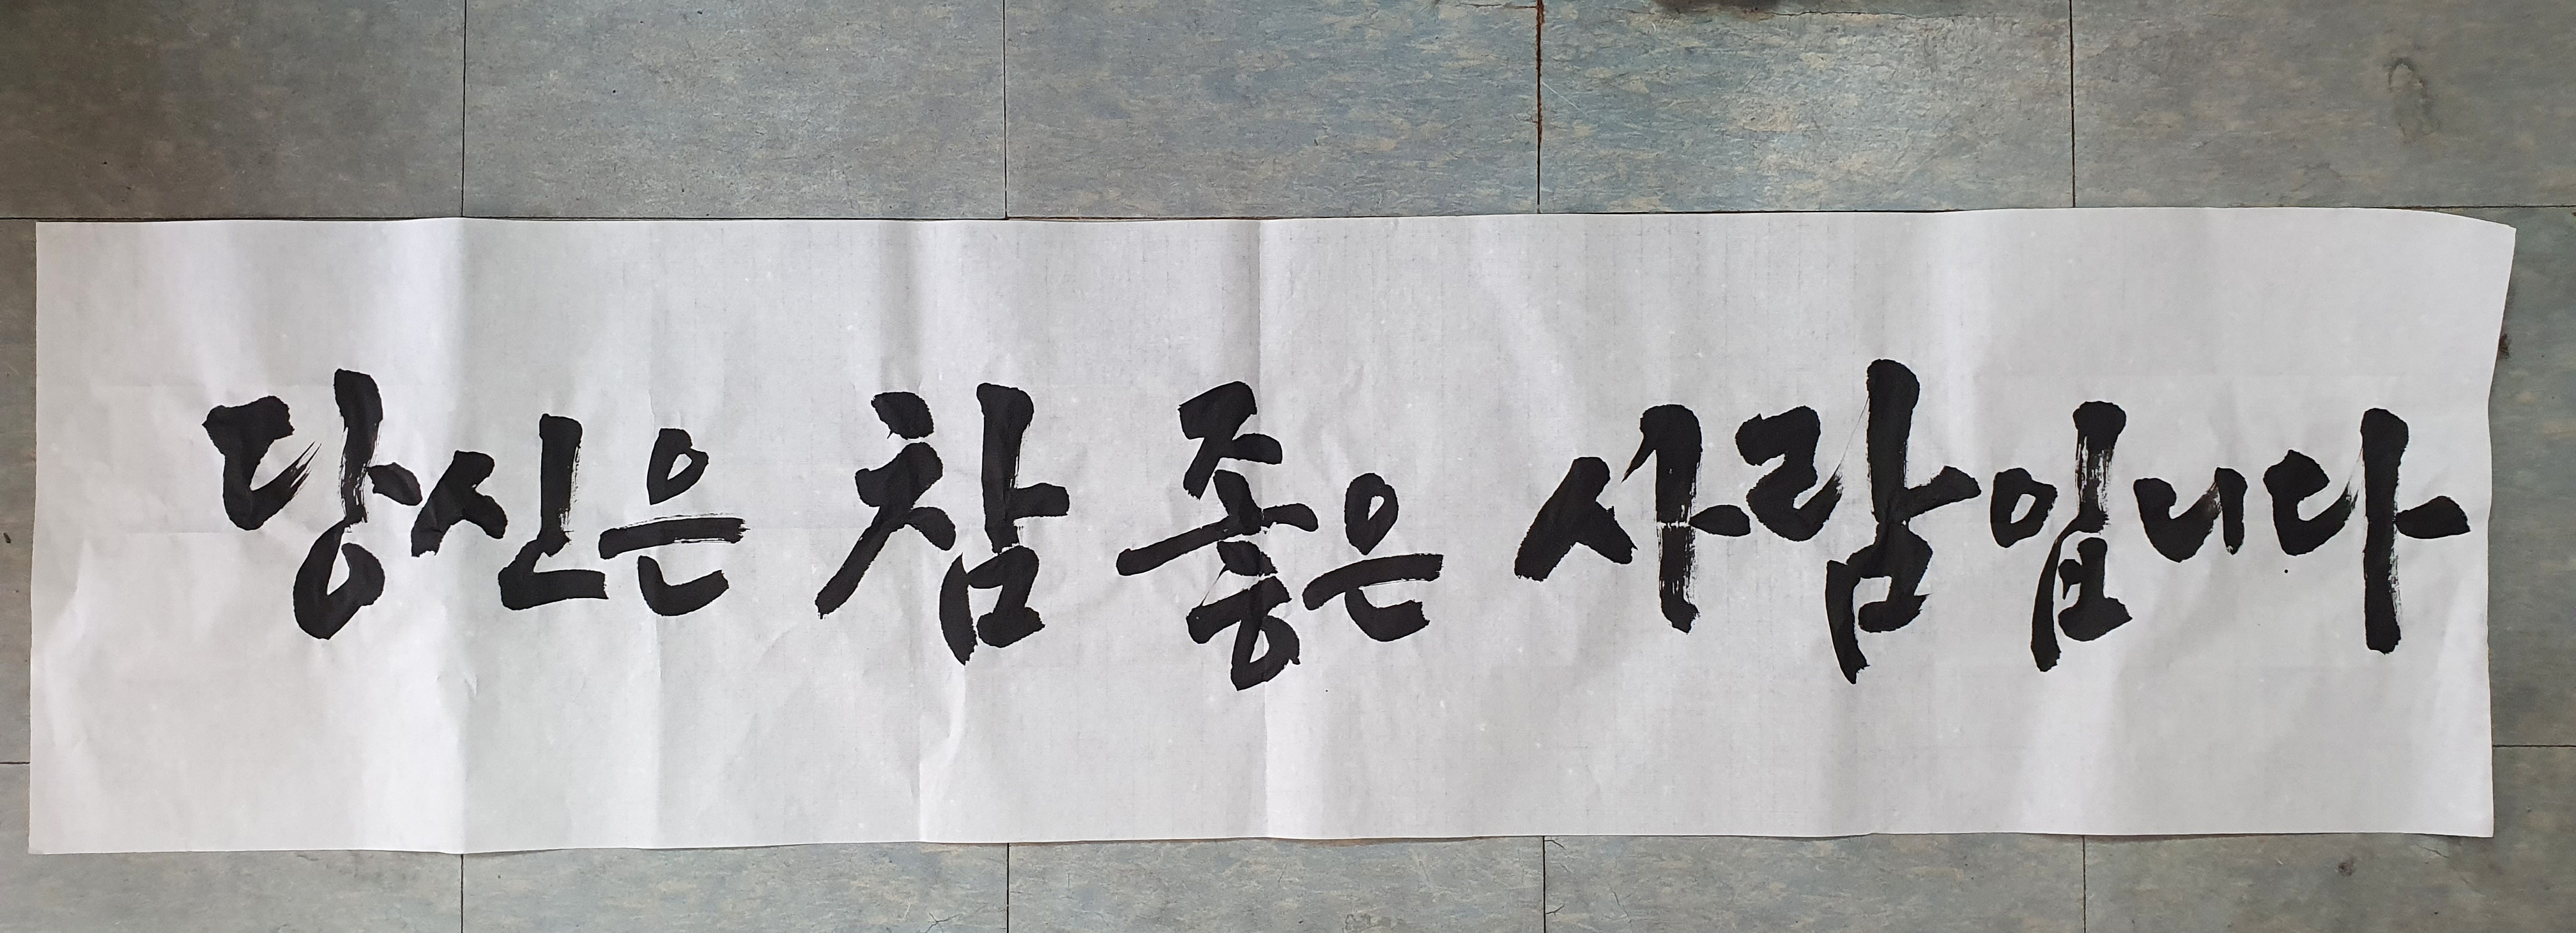 당신은 참 좋은 사람입니다